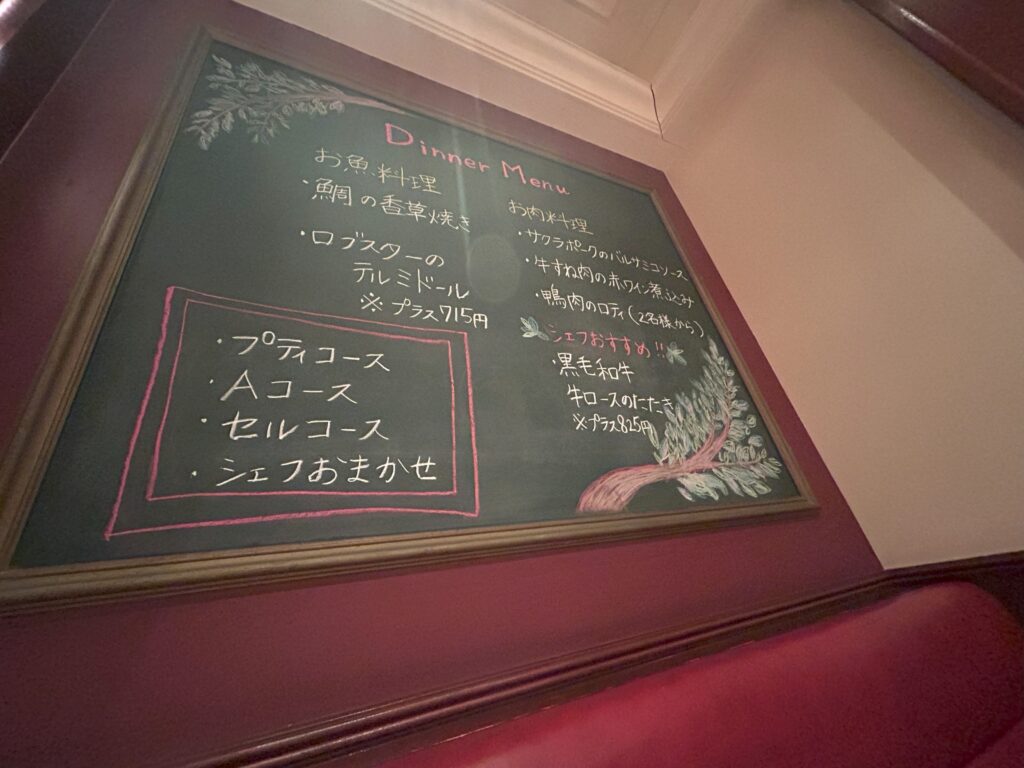 Dinner Menu
お魚料理
・鯛の香草焼き
・ロブスターの
テルミドール
※プラス715円
・プティコース
・Aコース
・セルコース
・シェフおまかせ
お肉料理
・サクラポークのバルサミコソース
・牛すね肉の赤ワイン煮込み
・鴨肉のロティ(2名様から)
シェフおすすめ!!
・黒毛和牛
牛ロースのたたき
※プラス825円